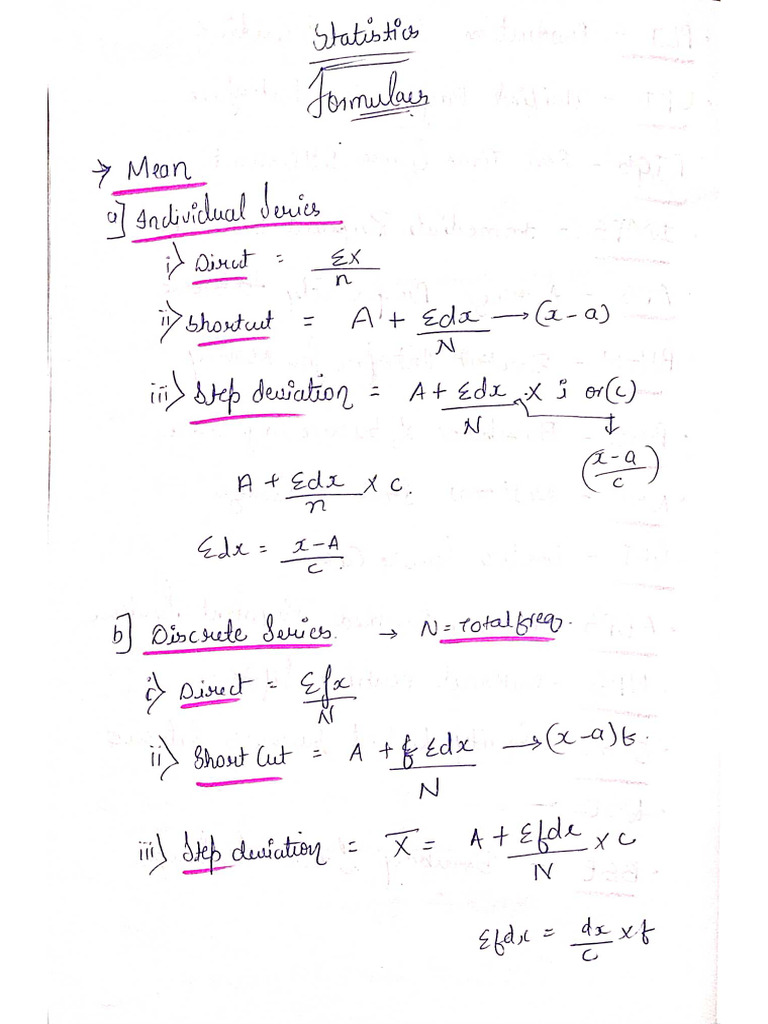 Statistics
Formulaes
→ Mean
a] Individual Series
i) Direct = Σx/n
ii) Shortcut = A + Σdx/N → (x-a)
iii) Step deviation = A + Σdx/N × i or (c)
↓ (x-a/c)
A + Σdx/n × c.
Σdx = x-A/c
b] Discrete Series. → N = Total freq.
i) Direct = Σfx/N
ii) Short Cut = A + fΣdx/N → (x-a)f.
iii) Step deviation = X̄ = A + Σfdx/N × C
Σfdx = dx/C × f